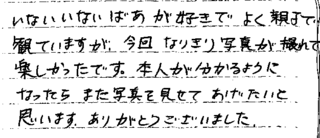 いないいないばあが好きで よく親子で
観ていますが、今回 なりきり写真が撮れて
楽しかったです。本人が分かるように
なったら また写真を見せて あげたいと
思います。ありがとうございました